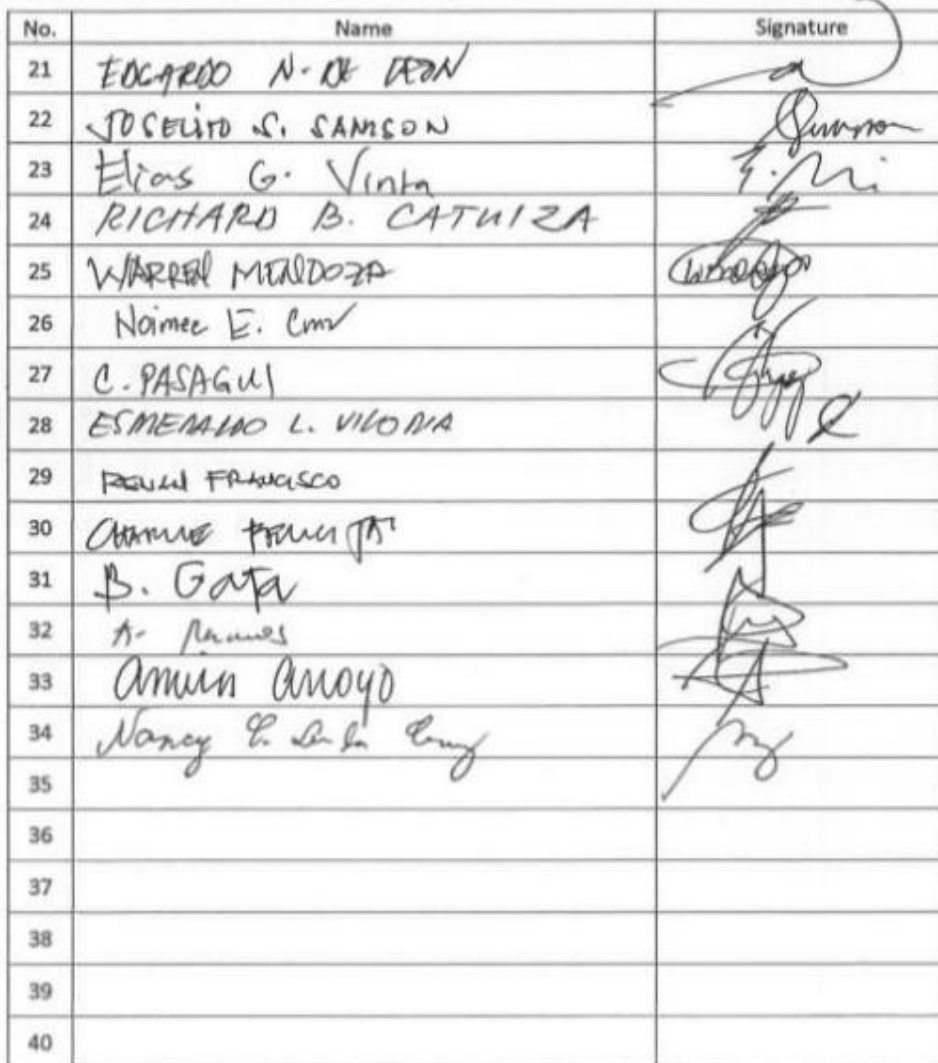 No. Name Signature
21 EDGARDO N. DE LEON
22 JOSELITO S. SAMSON
23 Elias G. Vinta
24 RICHARD B. CATUIZA
25 WARREN MENDOZA
26 Noimee E. Cruz
27 C. PASAGUI
28 ESMERALDO L. VILORIA
29 RENAN FRANCISCO
30 CHARLIE
31 B. Gata
32 A. Ramos
33 Arroyo
34 Nancy E. dela Cruz
35
36
37
38
39
40